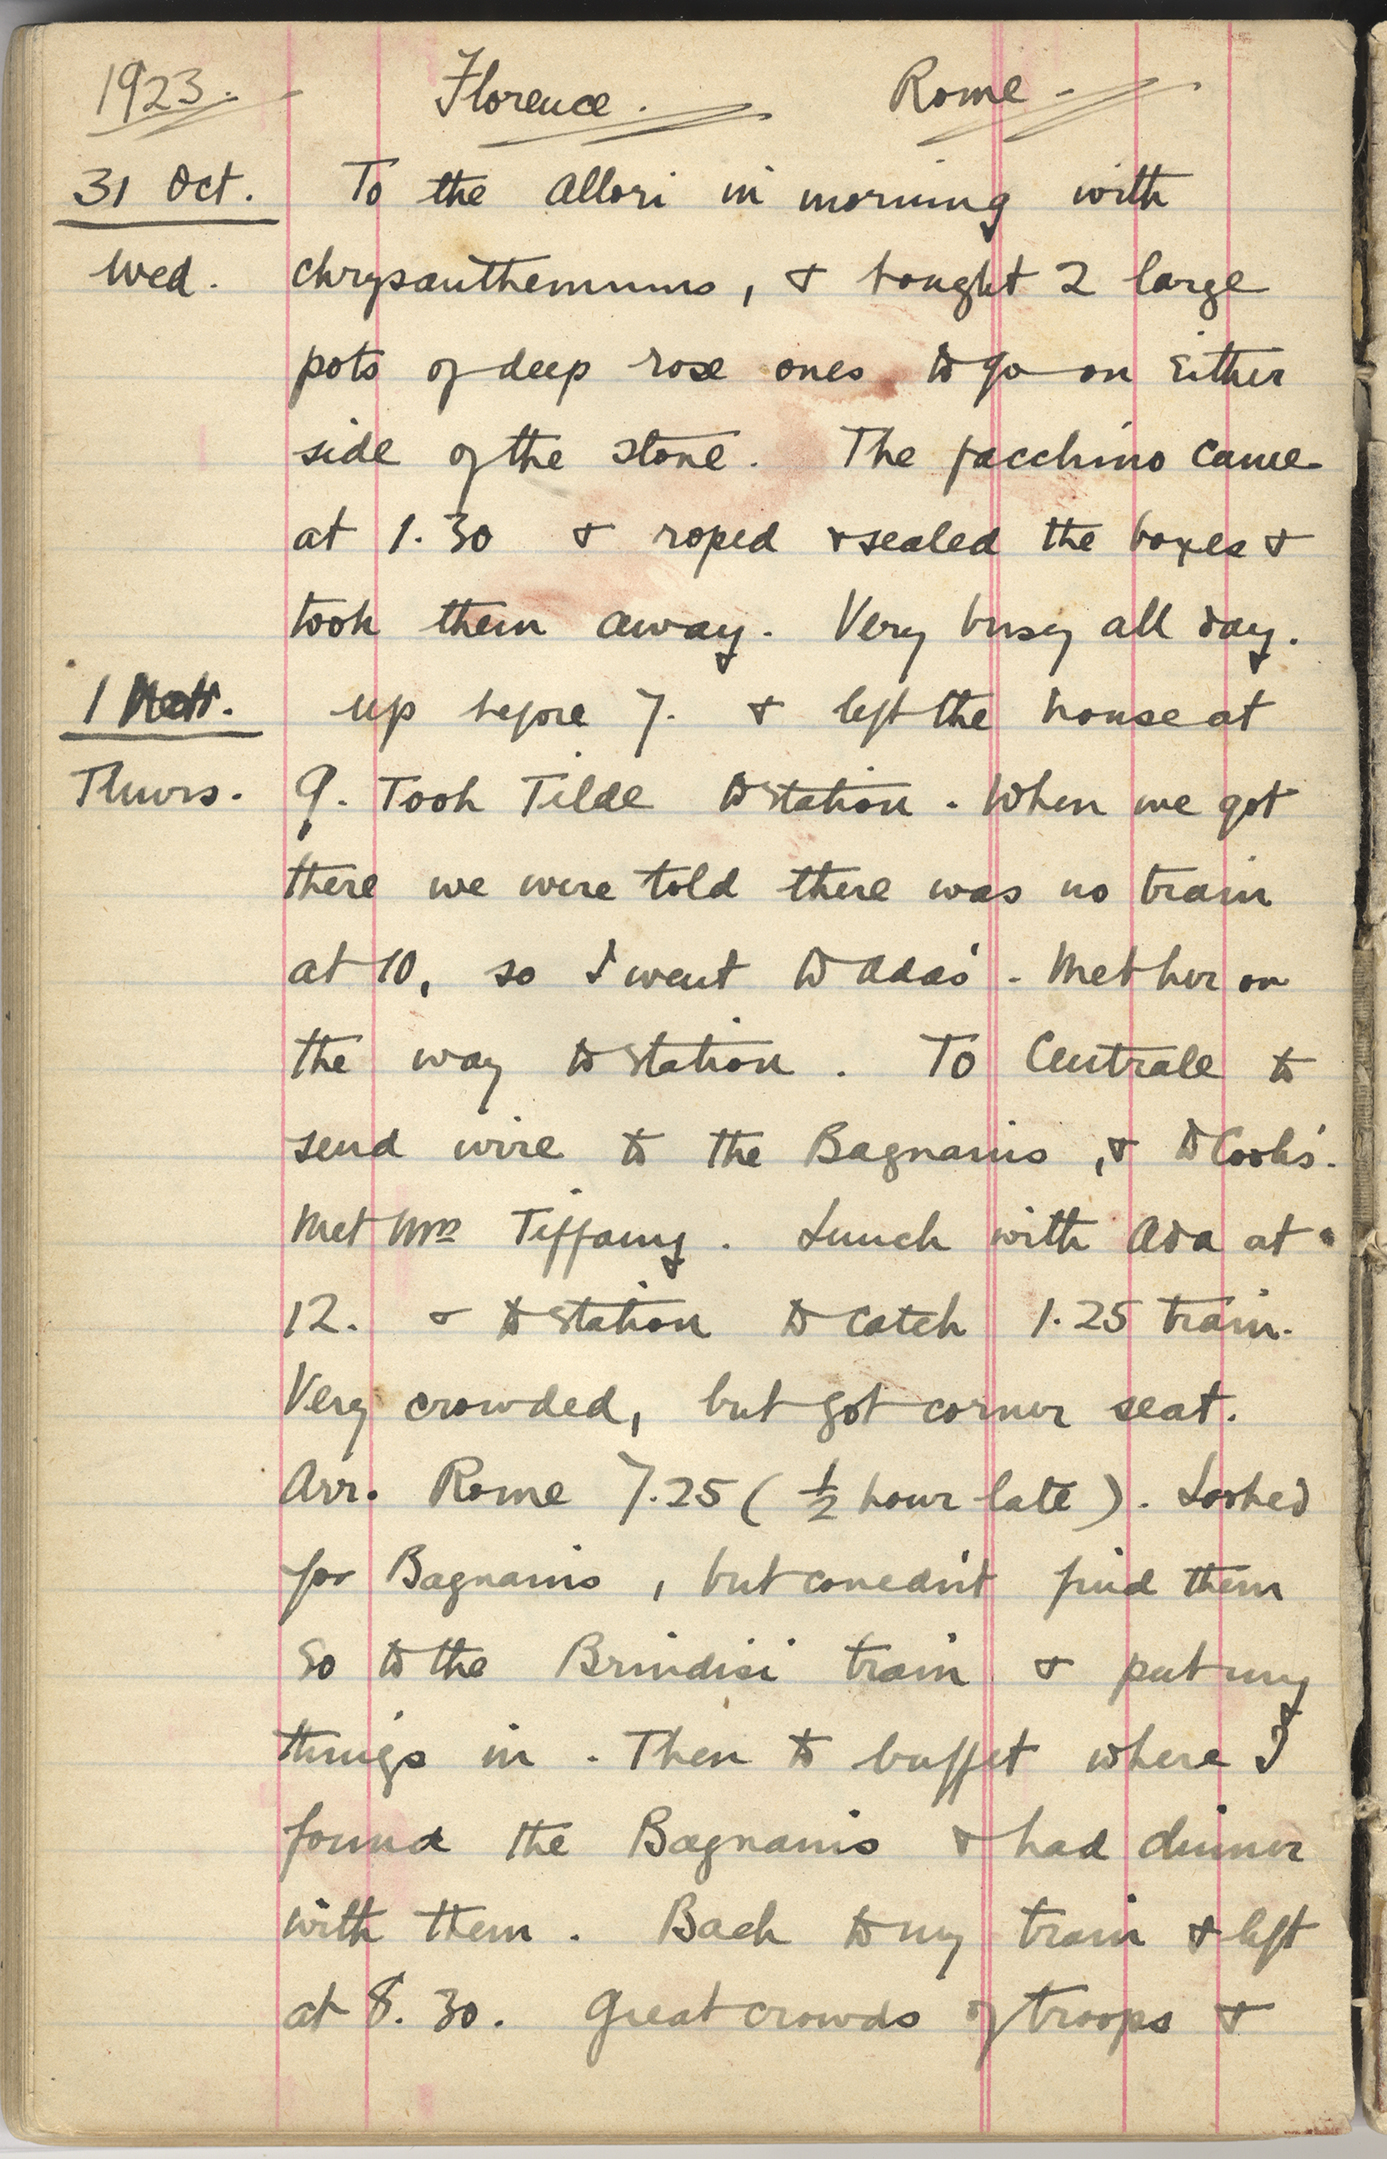 1923. Florence. Rome.
31 Oct. To the Allori in morning with
Wed. chrysanthemums, & bought 2 large
pots of deep rose ones to go on either
side of the stone. The facchino came
at 1.30 & roped & sealed the boxes &
took them away. Very busy all day.
1 Nov. up before 7. & left the house at
Thurs. 9. Took Tilde to station. When we got
there we were told there was no train
at 10, so I went to Ada's. Met her on
the way to station. To Centrale to
send wire to the Bagnanis, & to Cook's.
Met Mrs Tiffany. Lunch with Ada at
12. & to station to catch 1.25 train.
Very crowded, but got corner seat.
Arr. Rome 7.25 (½ hour late). Looked
for Bagnanis, but couldn't find them
So to the Brindisi train & put my
things in. Then to buffet where I
found the Bagnanis & had dinner
with them. Back to my train & left
at 8.30. Great crowds of troops &